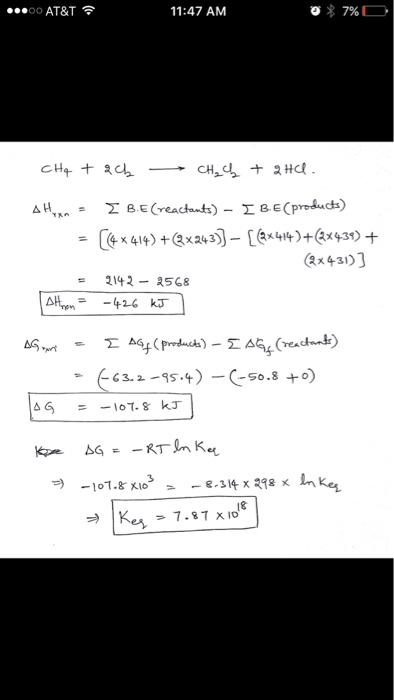 AT&T 11:47 AM 7%
CH₄ + 2Cl₂ ⟶ CH₂Cl₂ + 2HCl.
ΔHrxn = Σ B.E(reactants) - Σ B.E(products)
= [(4×414)+(2×243)] - [(2×414)+(2×439)+
(2×431)]
= 2142 - 2568
ΔHrxn = -426 kJ
ΔGrxn = Σ ΔGf(products) - Σ ΔGf(reactants)
= (-63.2-95.4) - (-50.8+0)
ΔG = -107.8 kJ
ΔG = -RT ln Keq
⇒ -107.8×10³ = -8.314×298× ln Keq
⇒ Keq = 7.87×10¹⁸